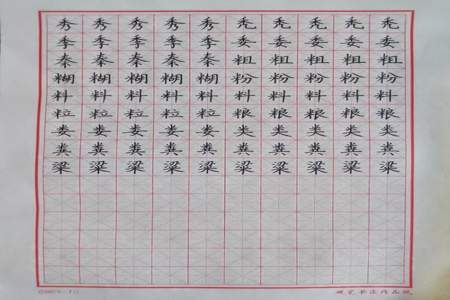 秀秀秀秀秀秃秃秃秃秃
季季季季季委委委委委
秦秦秦秦秦粗粗粗粗粗
糊糊糊糊糊粉粉粉粉粉
料料料料料料料料料料
粒粒粒粒粒粮粮粮粮粮
娄娄娄娄娄类类类类类
粪粪粪粪粪粪粪粪粪粪
粱粱粱粱粱粱粱粱粱粱